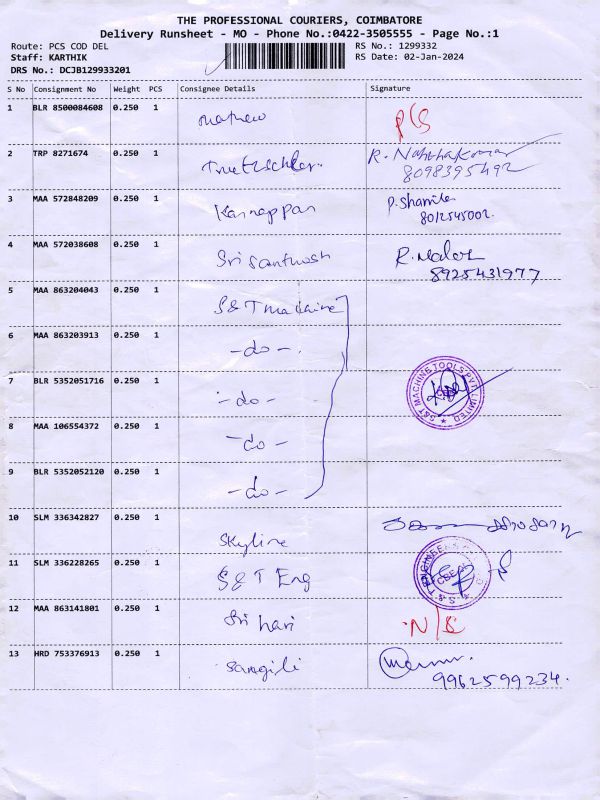 THE PROFESSIONAL COURIERS, COIMBATORE
Delivery Runsheet - MO - Phone No.:0422-3505555 - Page No.:1
Route: PCS COD DEL
RS No.: 1299332
Staff: KARTHIK
RS Date: 02-Jan-2024
DRS No.: DCJB129933201
S No Consignment No Weight PCS Consignee Details Signature
1 BLR 8500084608 0.250 1 mathew
2 TRP 8271674 0.250 1 R.
8098395492
3 MAA 572848209 0.250 1 Kannappan P. Sharmila
8012545002.
4 MAA 572038608 0.250 1 Sri Santhosh R. Malar
8925431977
5 MAA 863204043 0.250 1 S&T machine
6 MAA 863203913 0.250 1 - do - .
7 BLR 5352051716 0.250 1 - do -
S&T MACHINE TOOLS PVT LIMITED
8 MAA 106554372 0.250 1 - do -
9 BLR 5352052120 0.250 1 - do -
10 SLM 336342827 0.250 1 Skyline
11 SLM 336228265 0.250 1 S&T Eng
S & T ENGINEERS
12 MAA 863141801 0.250 1 Sri hari
13 HRD 753376913 0.250 1
9962599234.